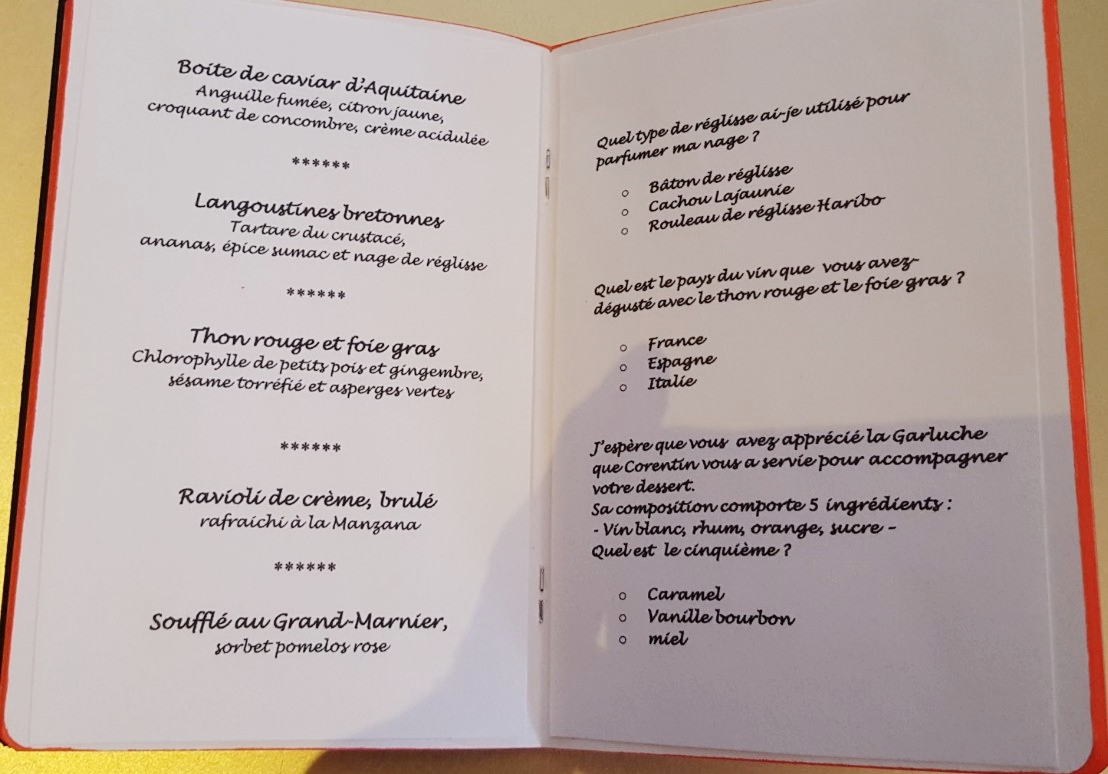 Boite de caviar d'Aquitaine
Anguille fumée, citron jaune,
croquant de concombre, crème acidulée
******
Langoustines bretonnes
Tartare du crustacé,
ananas, épice sumac et nage de réglisse
******
Thon rouge et foie gras
Chlorophylle de petits pois et gingembre,
sésame torréfié et asperges vertes
******
Ravioli de crème, brulé
rafraichi à la Manzana
******
Soufflé au Grand-Marnier,
sorbet pomelos rose
Quel type de réglisse ai-je utilisé pour
parfumer ma nage ?
o Bâton de réglisse
o Cachou Lajaunie
o Rouleau de réglisse Haribo
Quel est le pays du vin que vous avez-
dégusté avec le thon rouge et le foie gras ?
o France
o Espagne
o Italie
J'espère que vous avez apprécié la Garluche
que Corentin vous a servie pour accompagner
votre dessert.
Sa composition comporte 5 ingrédients :
- Vin blanc, rhum, orange, sucre –
Quel est le cinquième ?
o Caramel
o Vanille bourbon
o miel